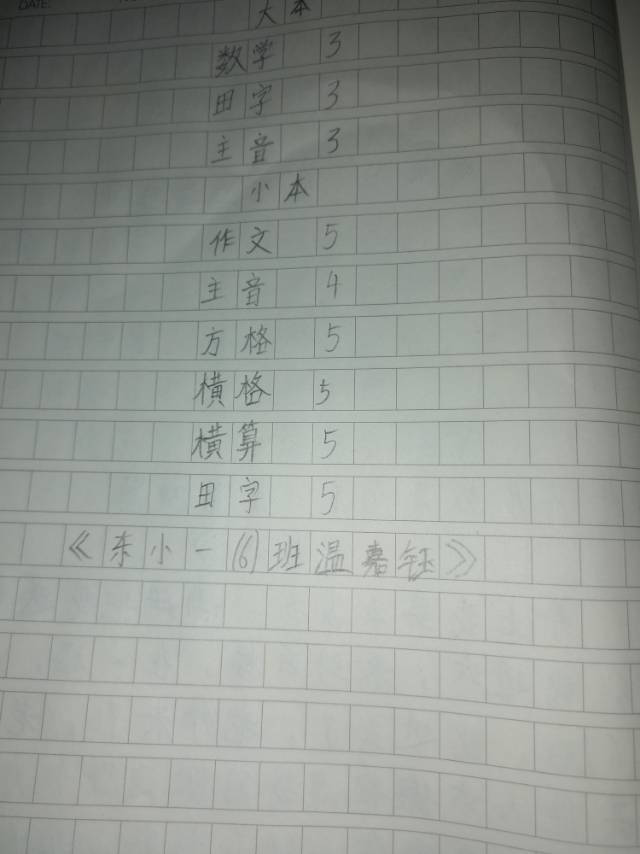 DATE:
大本
数学 3
田字 3
主音 3
小本
作文 5
主音 4
方格 5
横格 5
横算 5
田字 5
《东小一(6)班温嘉钰》